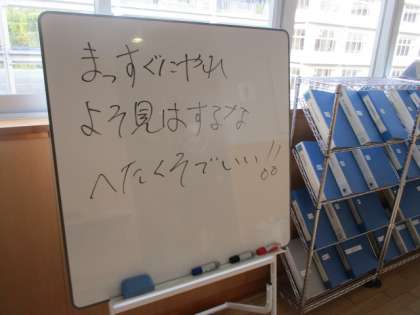 まっすぐにやれ
よそ見はするな
へたくそでいい!!